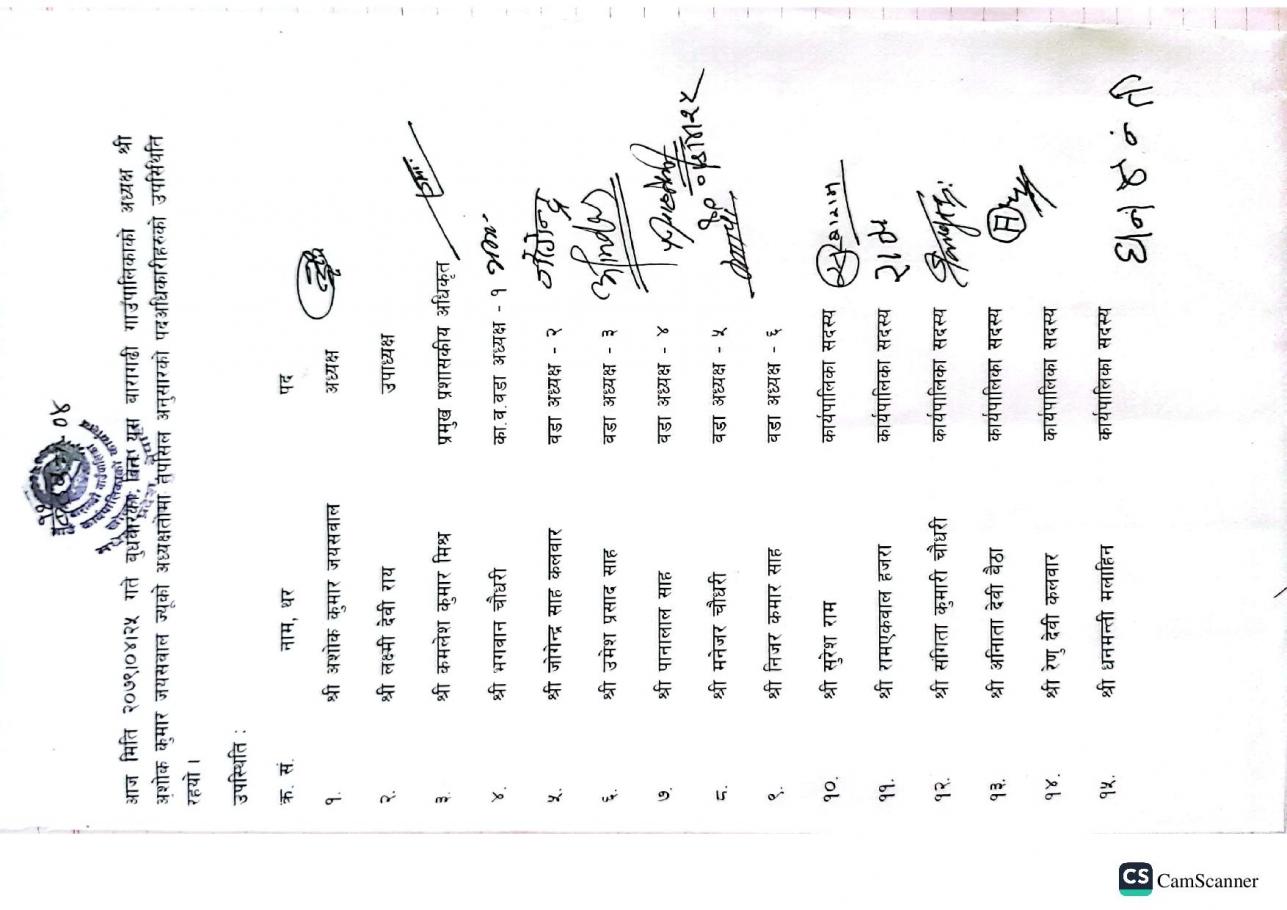 आज मिति २०७९।०४।२५ गते बुधबारका दिन यस बारागढी गाउंपालिकाको अध्यक्ष श्री
अशोक कुमार जयसवाल ज्यूको अध्यक्षतामा तपसिल अनुसारको पदअधिकारीहरुको उपस्थिति
रहयो ।
उपस्थिति :
क्र. सं. नाम, थर पद
१. श्री अशोक कुमार जयसवाल अध्यक्ष
२. श्री लक्ष्मी देवी राय उपाध्यक्ष
३. श्री कमलेश कुमार मिश्र प्रमुख प्रशासकीय अधिकृत
४. श्री भगवान चौधरी का.व.वडा अध्यक्ष - १
५. श्री जोगेन्द्र साह कलवार वडा अध्यक्ष - २
६. श्री उमेश प्रसाद साह वडा अध्यक्ष - ३
७. श्री पानालाल साह वडा अध्यक्ष - ४
८. श्री मनेजर चौधरी वडा अध्यक्ष - ५
९. श्री निजर कमार साह वडा अध्यक्ष - ६
१०. श्री सुरेश राम कार्यपालिका सदस्य
११. श्री रामएकवाल हजरा कार्यपालिका सदस्य राम
१२. श्री संगिता कुमारी चौधरी कार्यपालिका सदस्य
१३. श्री अनिता देवी बैठा कार्यपालिका सदस्य
१४. श्री रेणु देवी कलवार कार्यपालिका सदस्य
१५. श्री धनमन्ती मलाहिन कार्यपालिका सदस्य
CS CamScanner